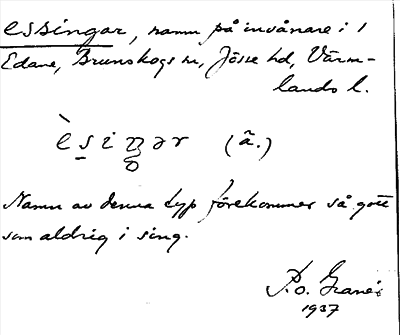 essingar, namn på invånare i
Edane, Brunskogs sn, Jösse hd, Värm-
lands l.
èsiŋər (ã.)
Namn av denna typ förekommer så gott
som aldrig i sing.
P.o.
1937